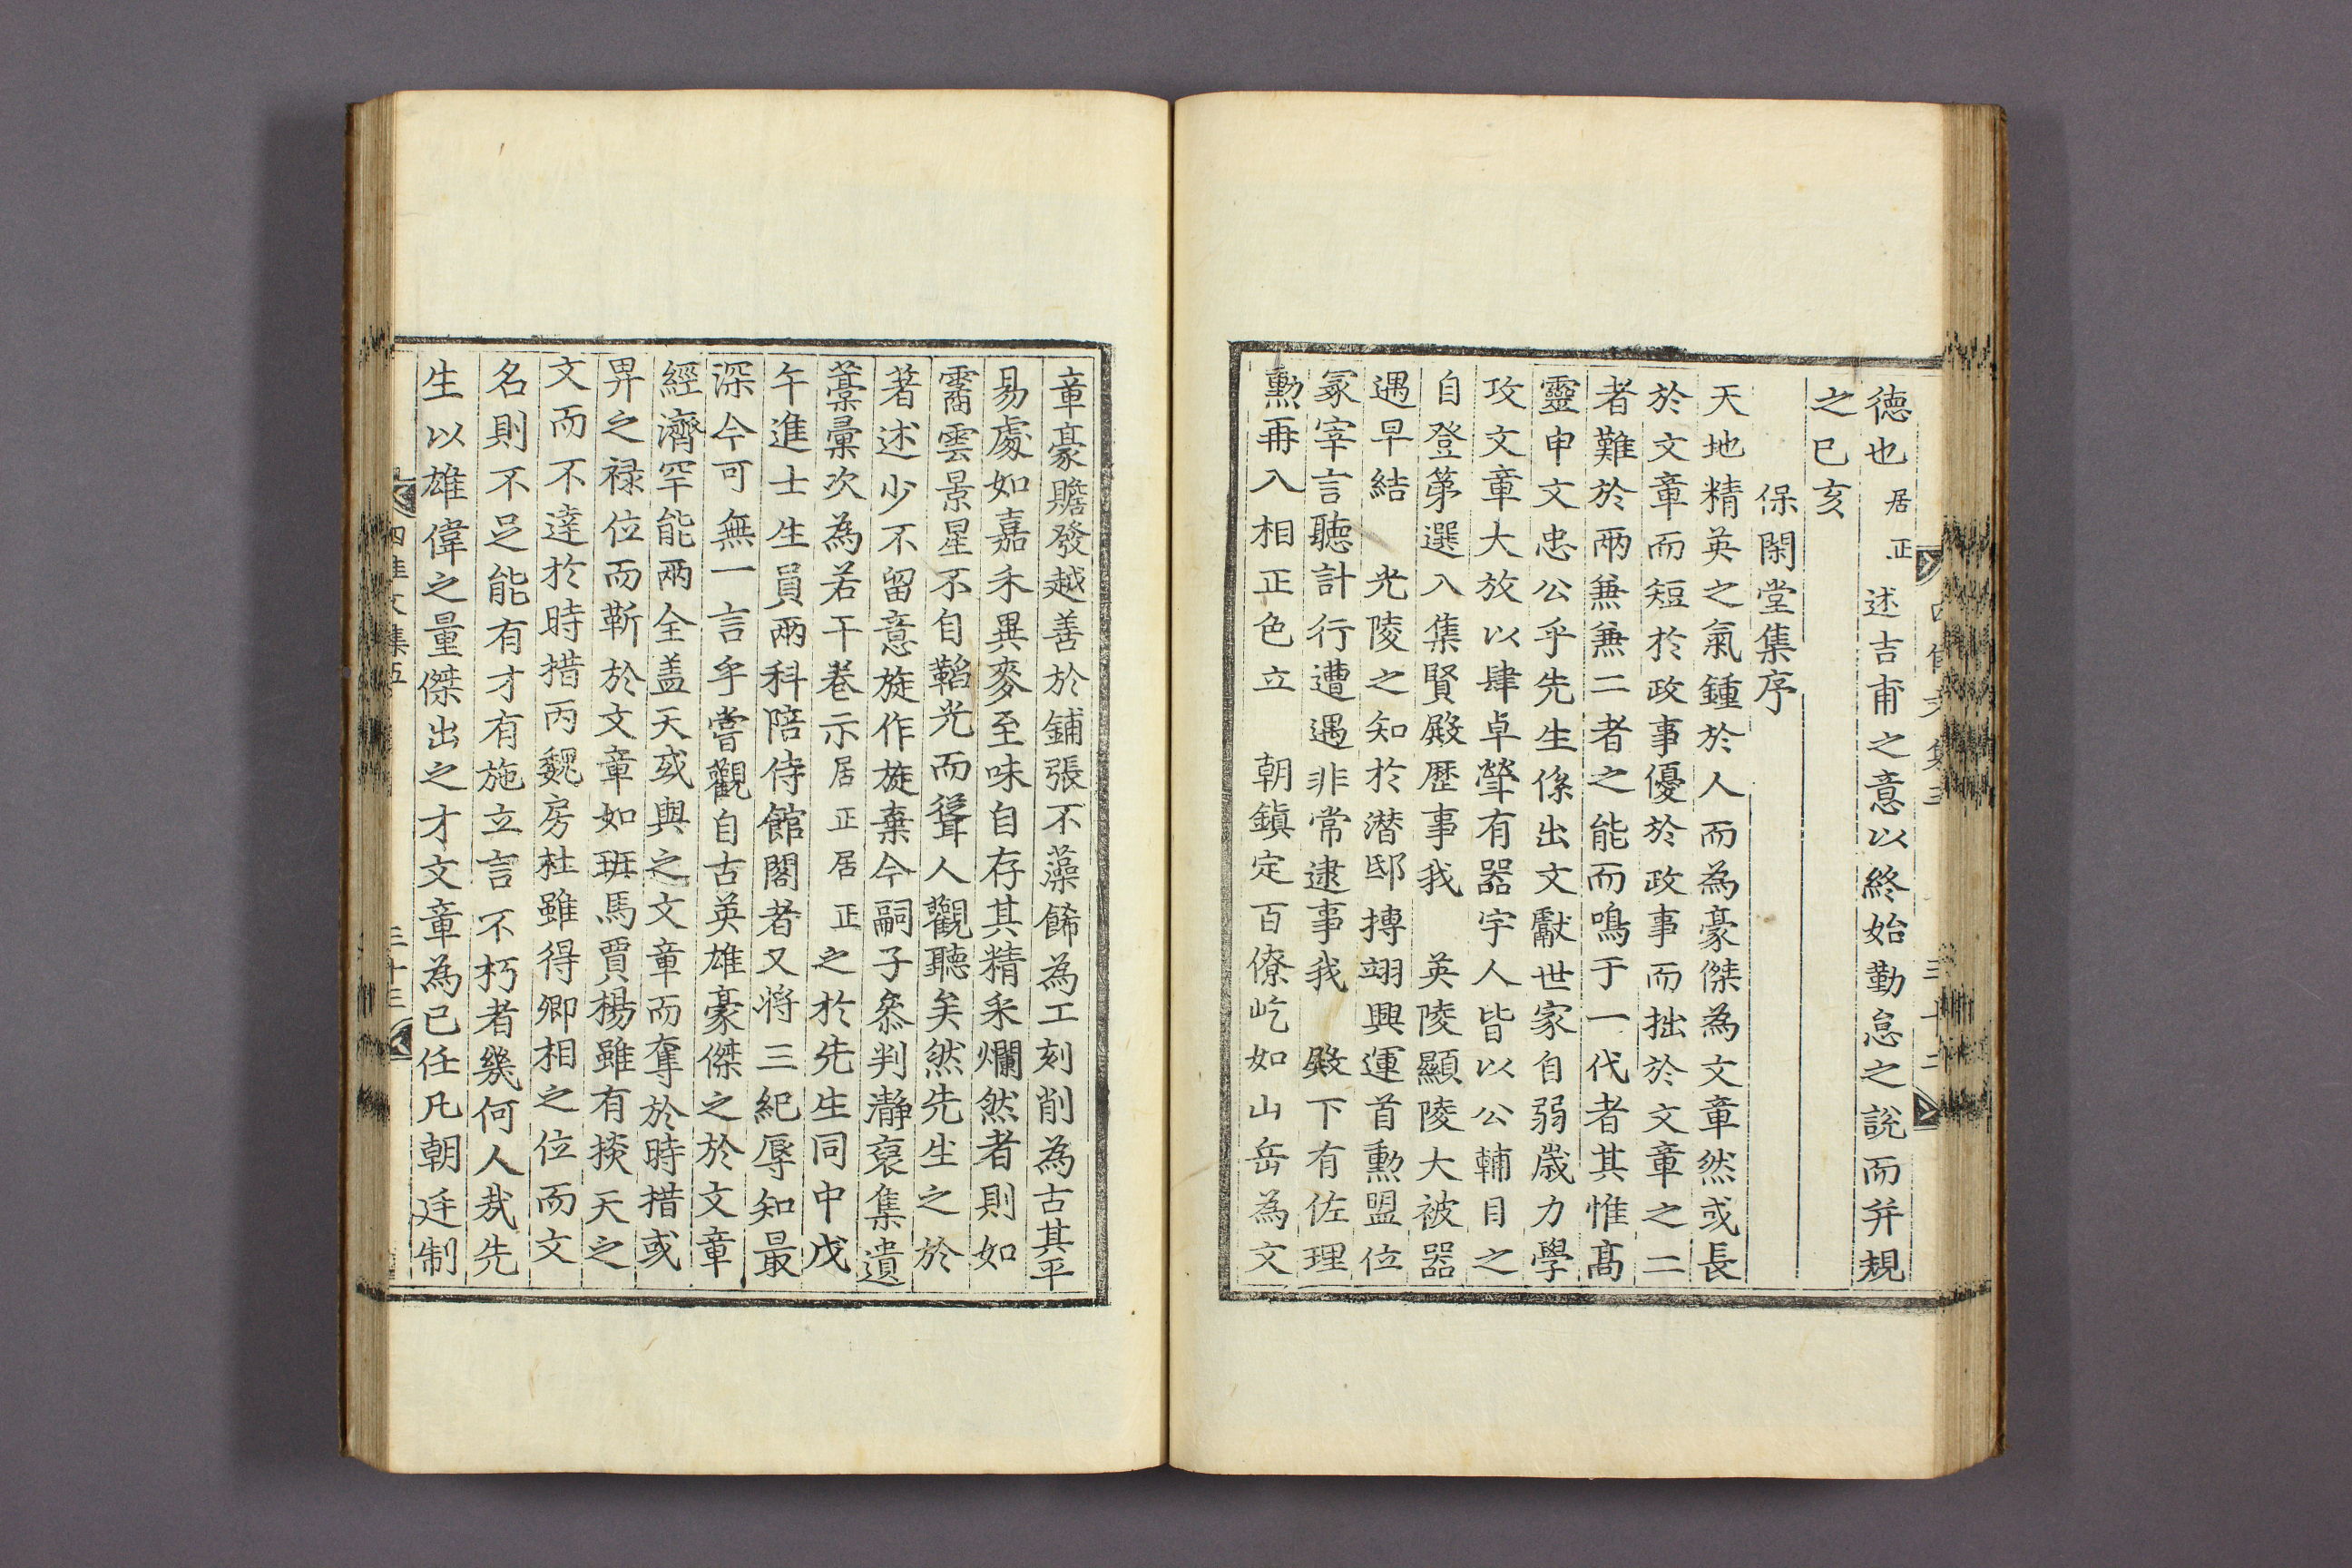 德也居正述吉甫之意以終始勤怠之說而幷規
之已亥
保閑堂集序
天地精英之氣鍾於人而為豪傑為文章然或長
於文章而短於政事優於政事而拙於文章之二
者難於兩兼兼二者之能而鳴于一代者其惟髙
靈申文忠公乎先生係出文獻世家自弱歲力學
攻文章大放以肆卓犖有器宇人皆以公輔目之
自登第選入集賢殿歷事我 英陵顯陵大被器
遇早結 光陵之知於潜邸摶翊興運首勲盟位
冢宰言聽計行遭遇非常逮事我 殿下有佐理
勲再入相正色立 朝鎭定百僚屹如山岳為文
章豪贍發越善於鋪張不藻餙為工刻削為古其平
易處如嘉禾異麥至味自存其精采爛然者則如
矞雲景星不自韜光而聳人觀聽矣然先生之於
著述少不留意旋作旋棄今嗣子叅判瀞裒集遺
藁彙次為若干卷示居正居正之於先生同中戊
午進士生員兩科陪侍館閣者又將三紀辱知最
深今可無一言乎嘗觀自古英雄豪傑之於文章
經濟罕能兩全盖天或與之文章而奪於時措或
畀之禄位而靳於文章如班馬賈楊雖有掞天之
文而不達於時措丙魏房杜雖得卿相之位而文
名則不足能有才有施立言不朽者幾何人㢤先
生以雄偉之量傑出之才文章為己任凡朝廷制
四佳文集五
三十三